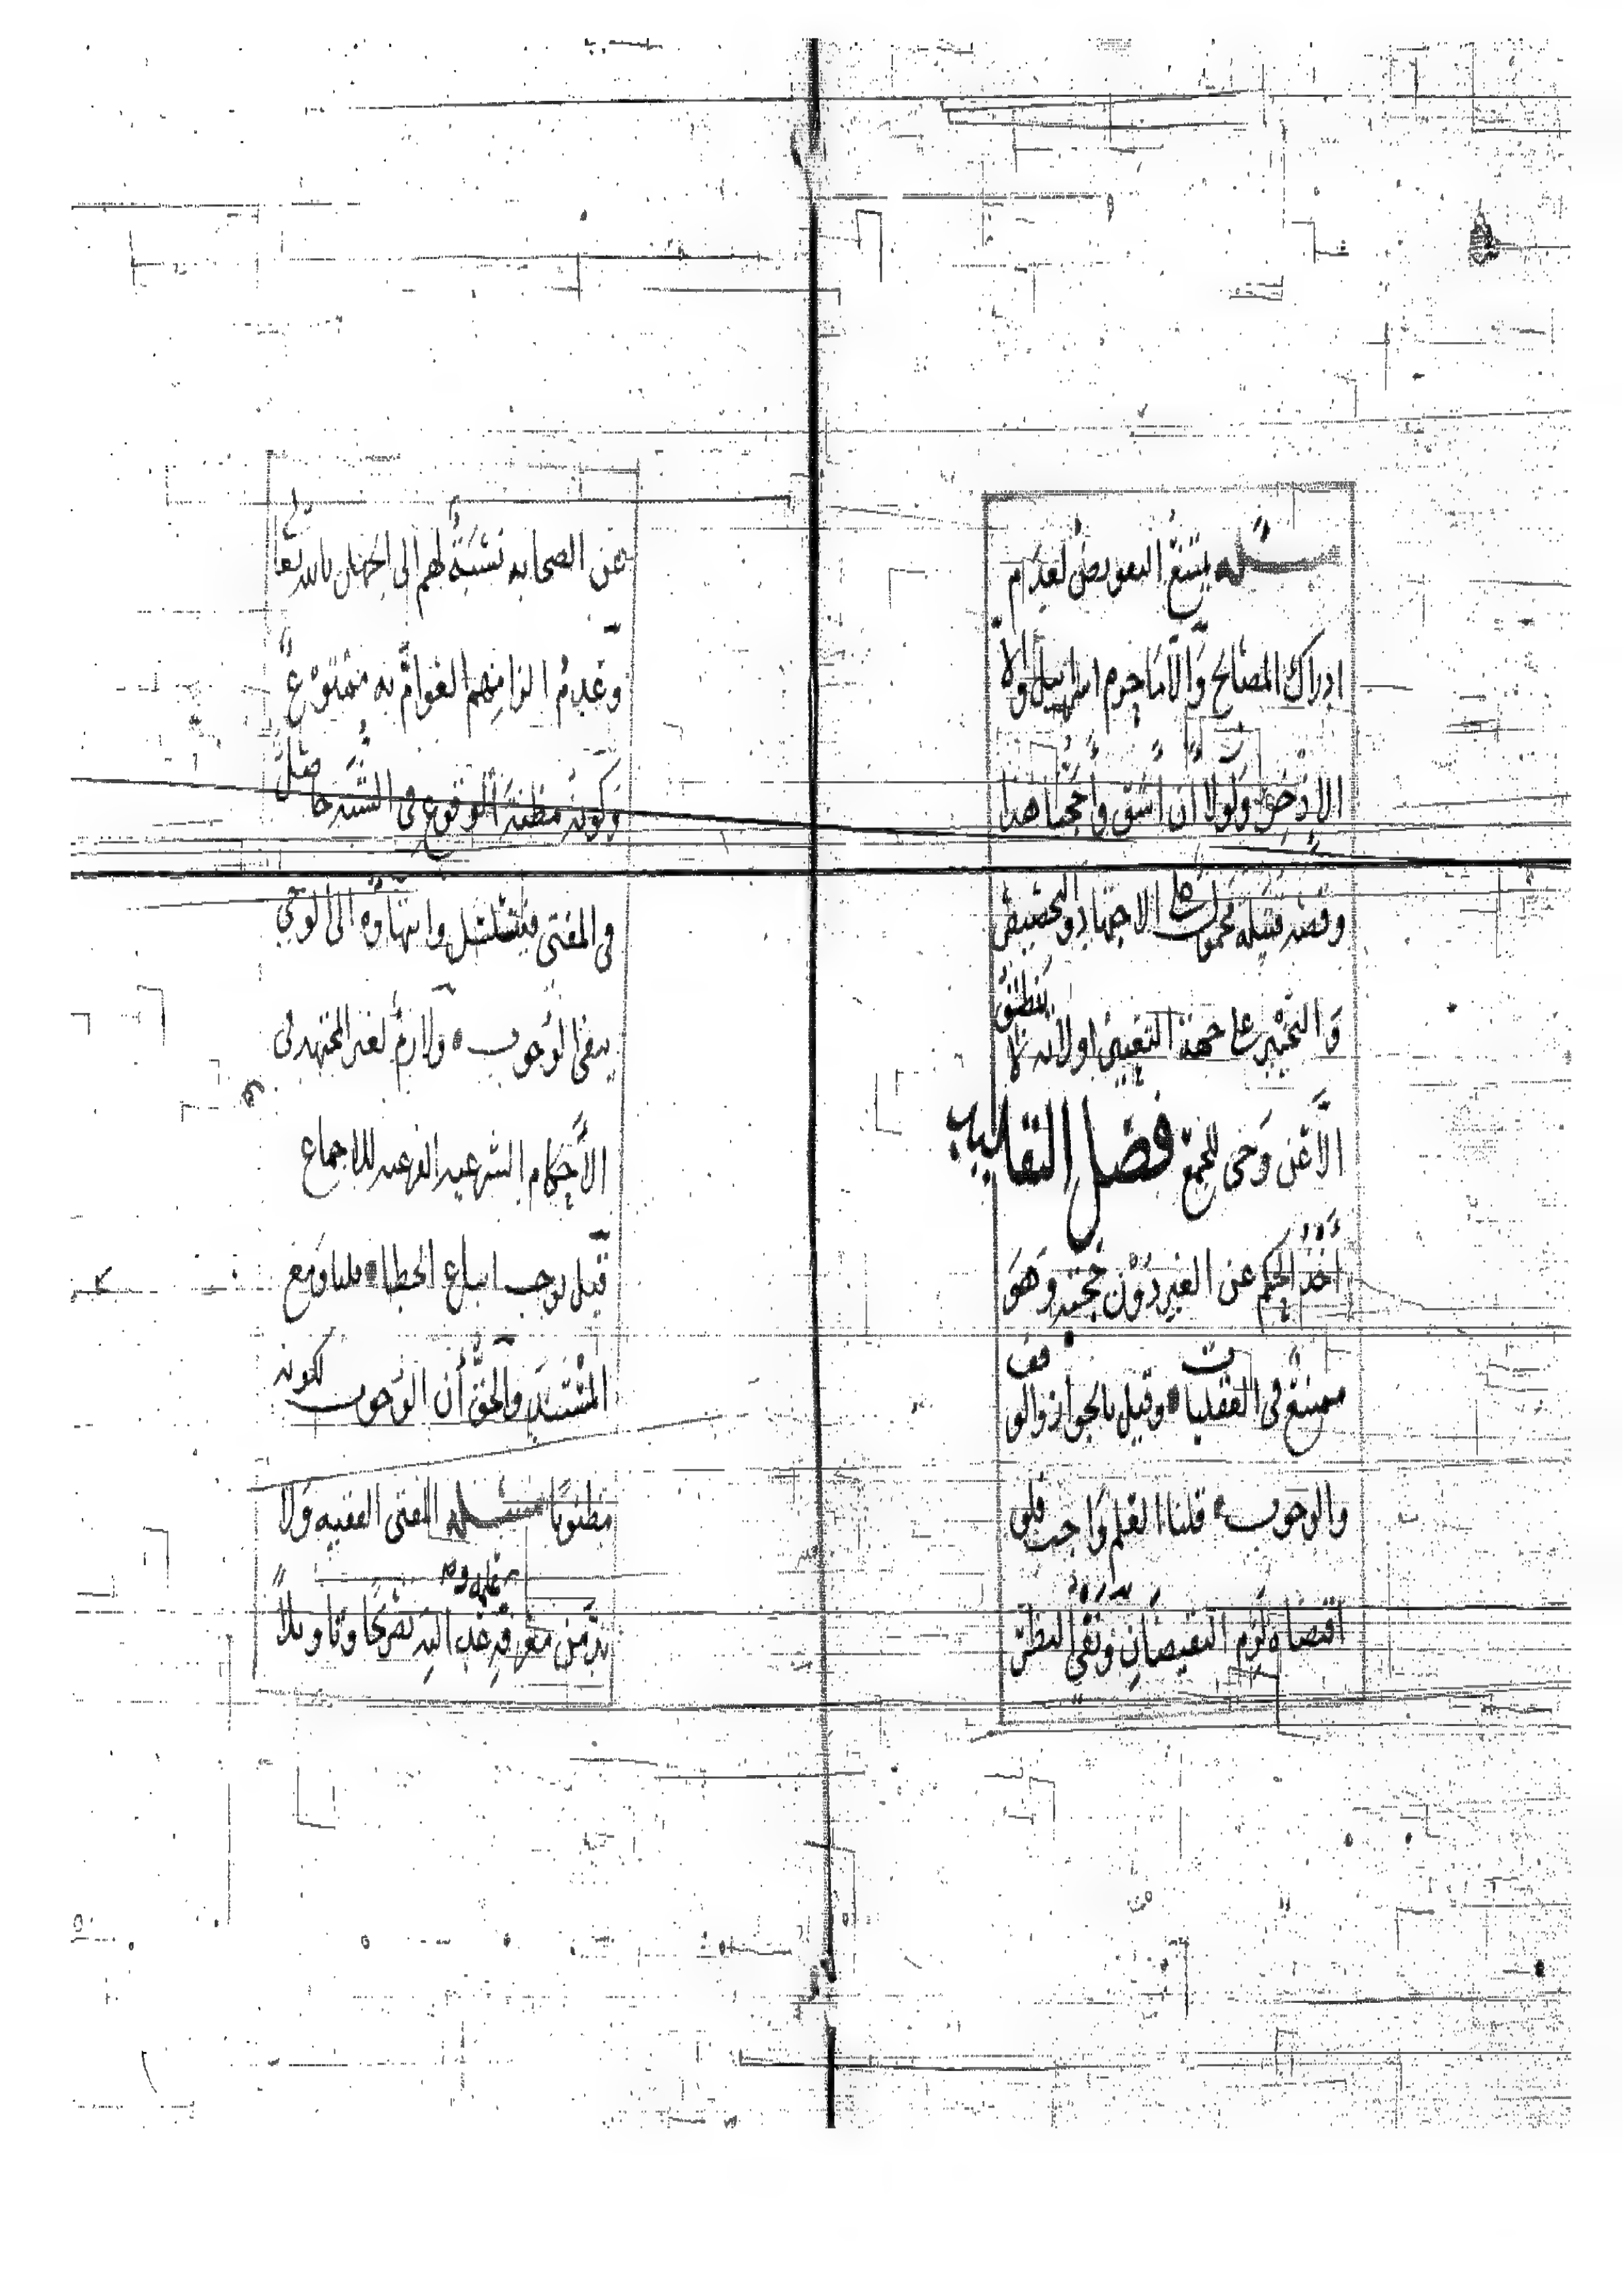 مسئله يمتنع التفويض لعدم
ادراك المصالح والا ما حرم اسرائيل والا
الاذخر ولولا ان اشق وأحجنا هذا
وقصه قتيله محمولات على الاجتهاد والتخصيص
والتخيير على جهة التعيين اولا لانه لا ينطق
الا عن وحى للجمع فصل التقليد
أخذ الحكم عن الغير دون حجته وهو
ممتنع فى العقليات وقيل بالجواز والوقف
والوجوب قلنا العلم واجب فلو
اقتضاه لزم النقيضان ونفى النظر
عن الصحابه نسبة لهم الى الجهل بالله تعا
وعدم الزامهم العوام به ممنوع
وكونه مظنة الوقوع فى الشبه حاصل
فى المفتى فيتسلسل وانتهاؤه الى الوحي
ينفى الوجوب ولازم لغير المجتهد فى
الأحكام الشرعيه الفرعيه للاجماع
قيل يوجب اتباع الخطا قلنا ومع
المستند والحق أن الوجوب لكونه
مظنونا مسئله المفتى الفقيه ولا
بد من معرفة مذهب اليه تصريحا وتاويلا